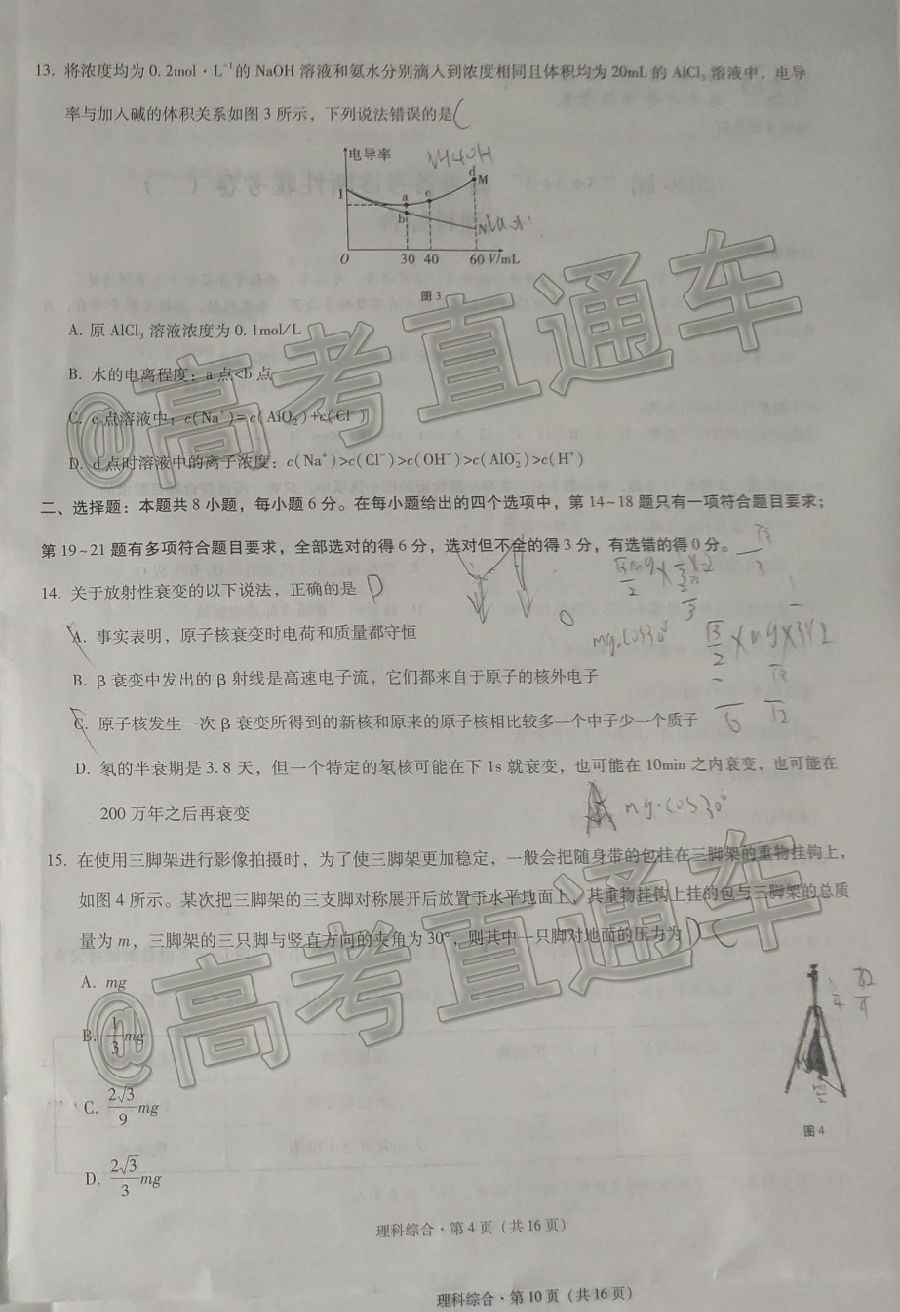 13. 将浓度均为 0.2mol·L⁻¹的 NaOH 溶液和氨水分别滴入到浓度相同且体积均为 20mL 的 AlCl₃ 溶液中，电导
率与加入碱的体积关系如图 3 所示，下列说法错误的是 C
电导率
NH4OH
1
a
b
c
d
M
N
O
30 40 60 V/mL
图 3
A. 原 AlCl₃ 溶液浓度为 0.1mol/L
B. 水的电离程度：a 点<b 点
C. c 点溶液中：c(Na⁺)=c(AlO₂⁻)+c(Cl⁻)
D. d 点时溶液中的离子浓度：c(Na⁺)>c(Cl⁻)>c(OH⁻)>c(AlO₂⁻)>c(H⁺)
二、选择题：本题共 8 小题，每小题 6 分。在每小题给出的四个选项中，第 14~18 题只有一项符合题目要求；
第 19~21 题有多项符合题目要求，全部选对的得 6 分，选对但不全的得 3 分，有选错的得 0 分。
14. 关于放射性衰变的以下说法，正确的是 D
A. 事实表明，原子核衰变时电荷和质量都守恒
mg·cos30°
B. β 衰变中发出的 β 射线是高速电子流，它们都来自于原子的核外电子
C. 原子核发生一次 β 衰变所得到的新核和原来的原子核相比较多一个中子少一个质子
D. 氡的半衰期是 3.8 天，但一个特定的氡核可能在下 1s 就衰变，也可能在 10min 之内衰变，也可能在
200 万年之后再衰变
mg·cos30°
15. 在使用三脚架进行影像拍摄时，为了使三脚架更加稳定，一般会把随身带的包挂在三脚架的重物挂钩上，
如图 4 所示。某次把三脚架的三支脚对称展开后放置于水平地面上，其重物挂钩上挂的包与三脚架的总质
量为 m，三脚架的三只脚与竖直方向的夹角为 30°，则其中一只脚对地面的压力为 D C
A. mg
B. 1/3 mg
C. 2√3/9 mg
D. 2√3/3 mg
图 4
理科综合·第 4 页（共 16 页）
理科综合·第 10 页（共 16 页）
@高考直通车
@高考直通车